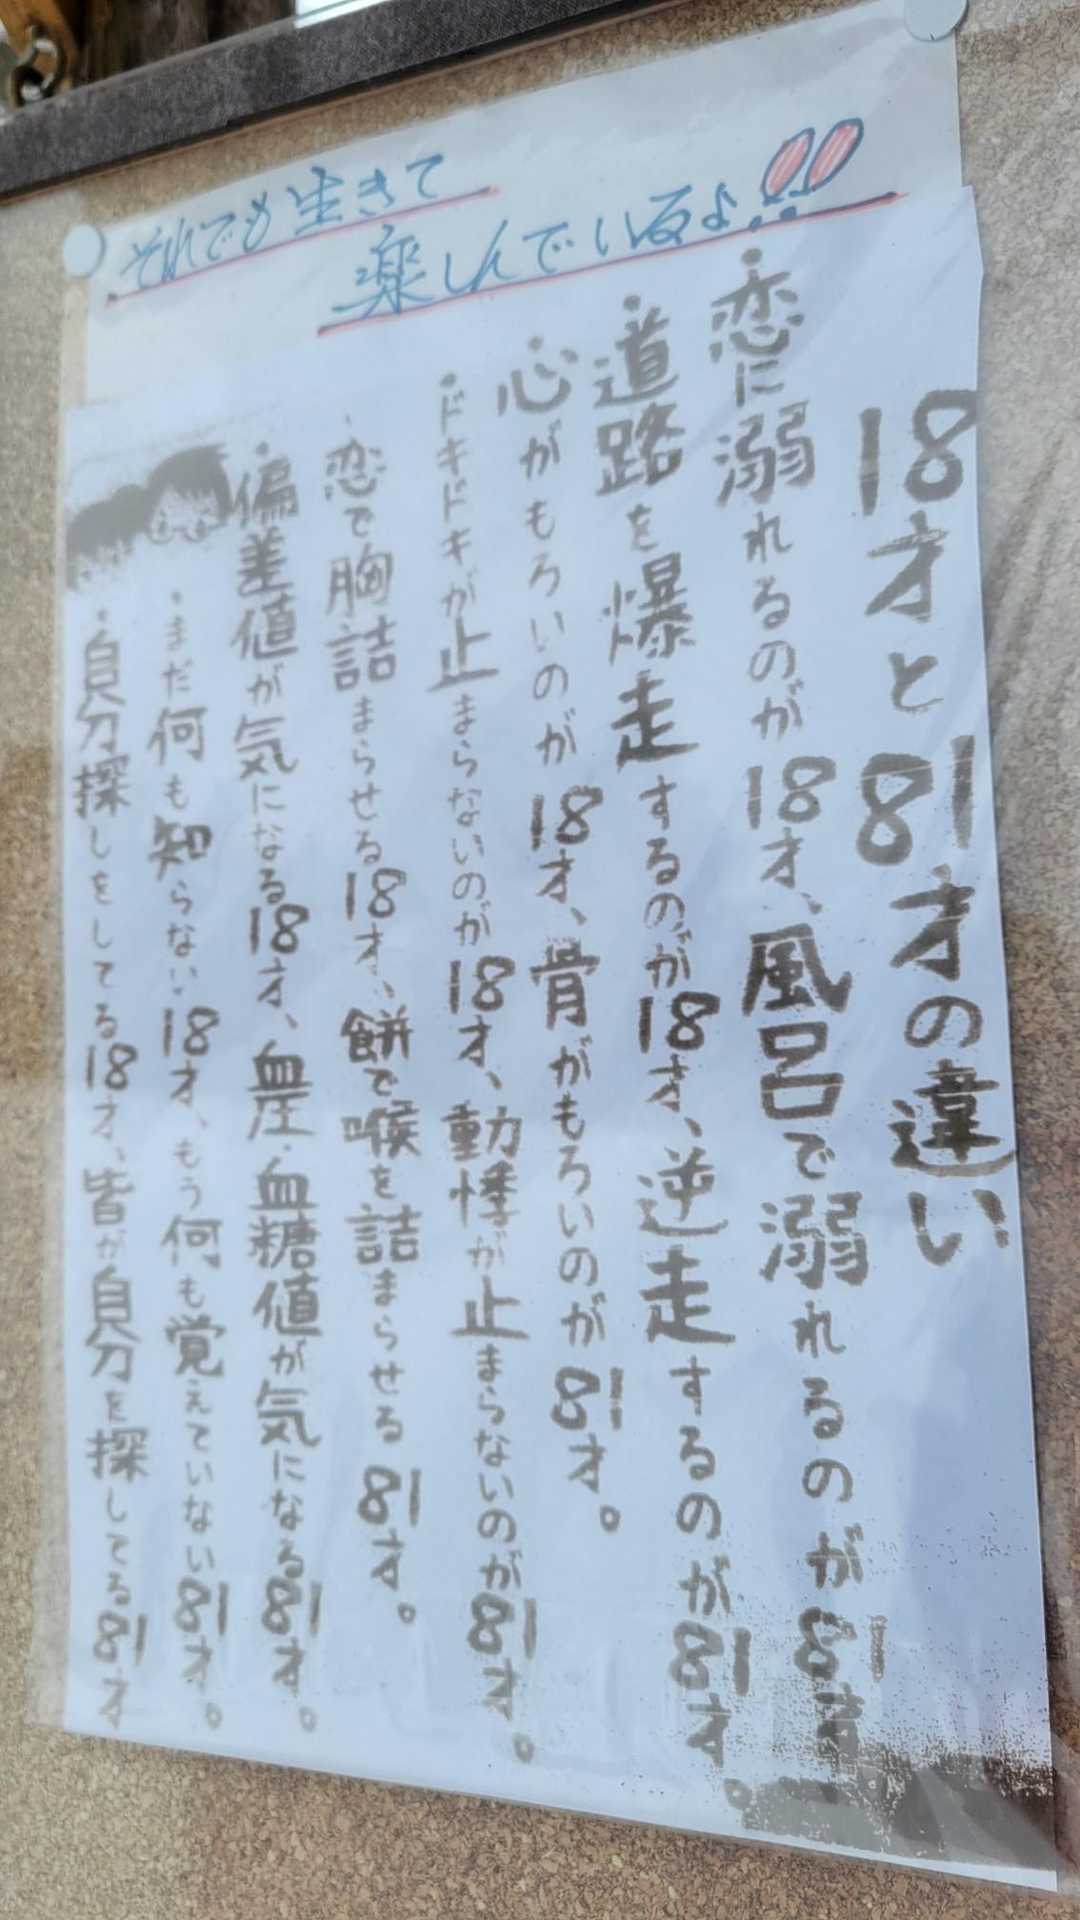 それでも生きて
楽しんでいるよ!!
18才と81才の違い
・恋に溺れるのが18才、風呂で溺れるのが81才。
・道路を爆走するのが18才、逆走するのが81才。
・心がもろいのが18才、骨がもろいのが81才。
・ドキドキが止まらないのが18才、動悸が止まらないのが81才。
・恋で胸詰まらせる18才、餅で喉を詰まらせる81才。
・偏差値が気になる18才、血圧・血糖値が気になる81才。
・まだ何も知らない18才、もう何も覚えていない81才。
・自分探しをしてる18才、皆が自分を探してる81才